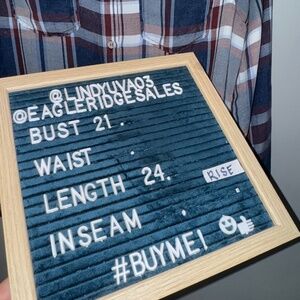 @LINDYUVA03
@EAGLERIDGESALES
BUST 21.
WAIST .
LENGTH 24. RISE .
INSEAM .
#BUYME!